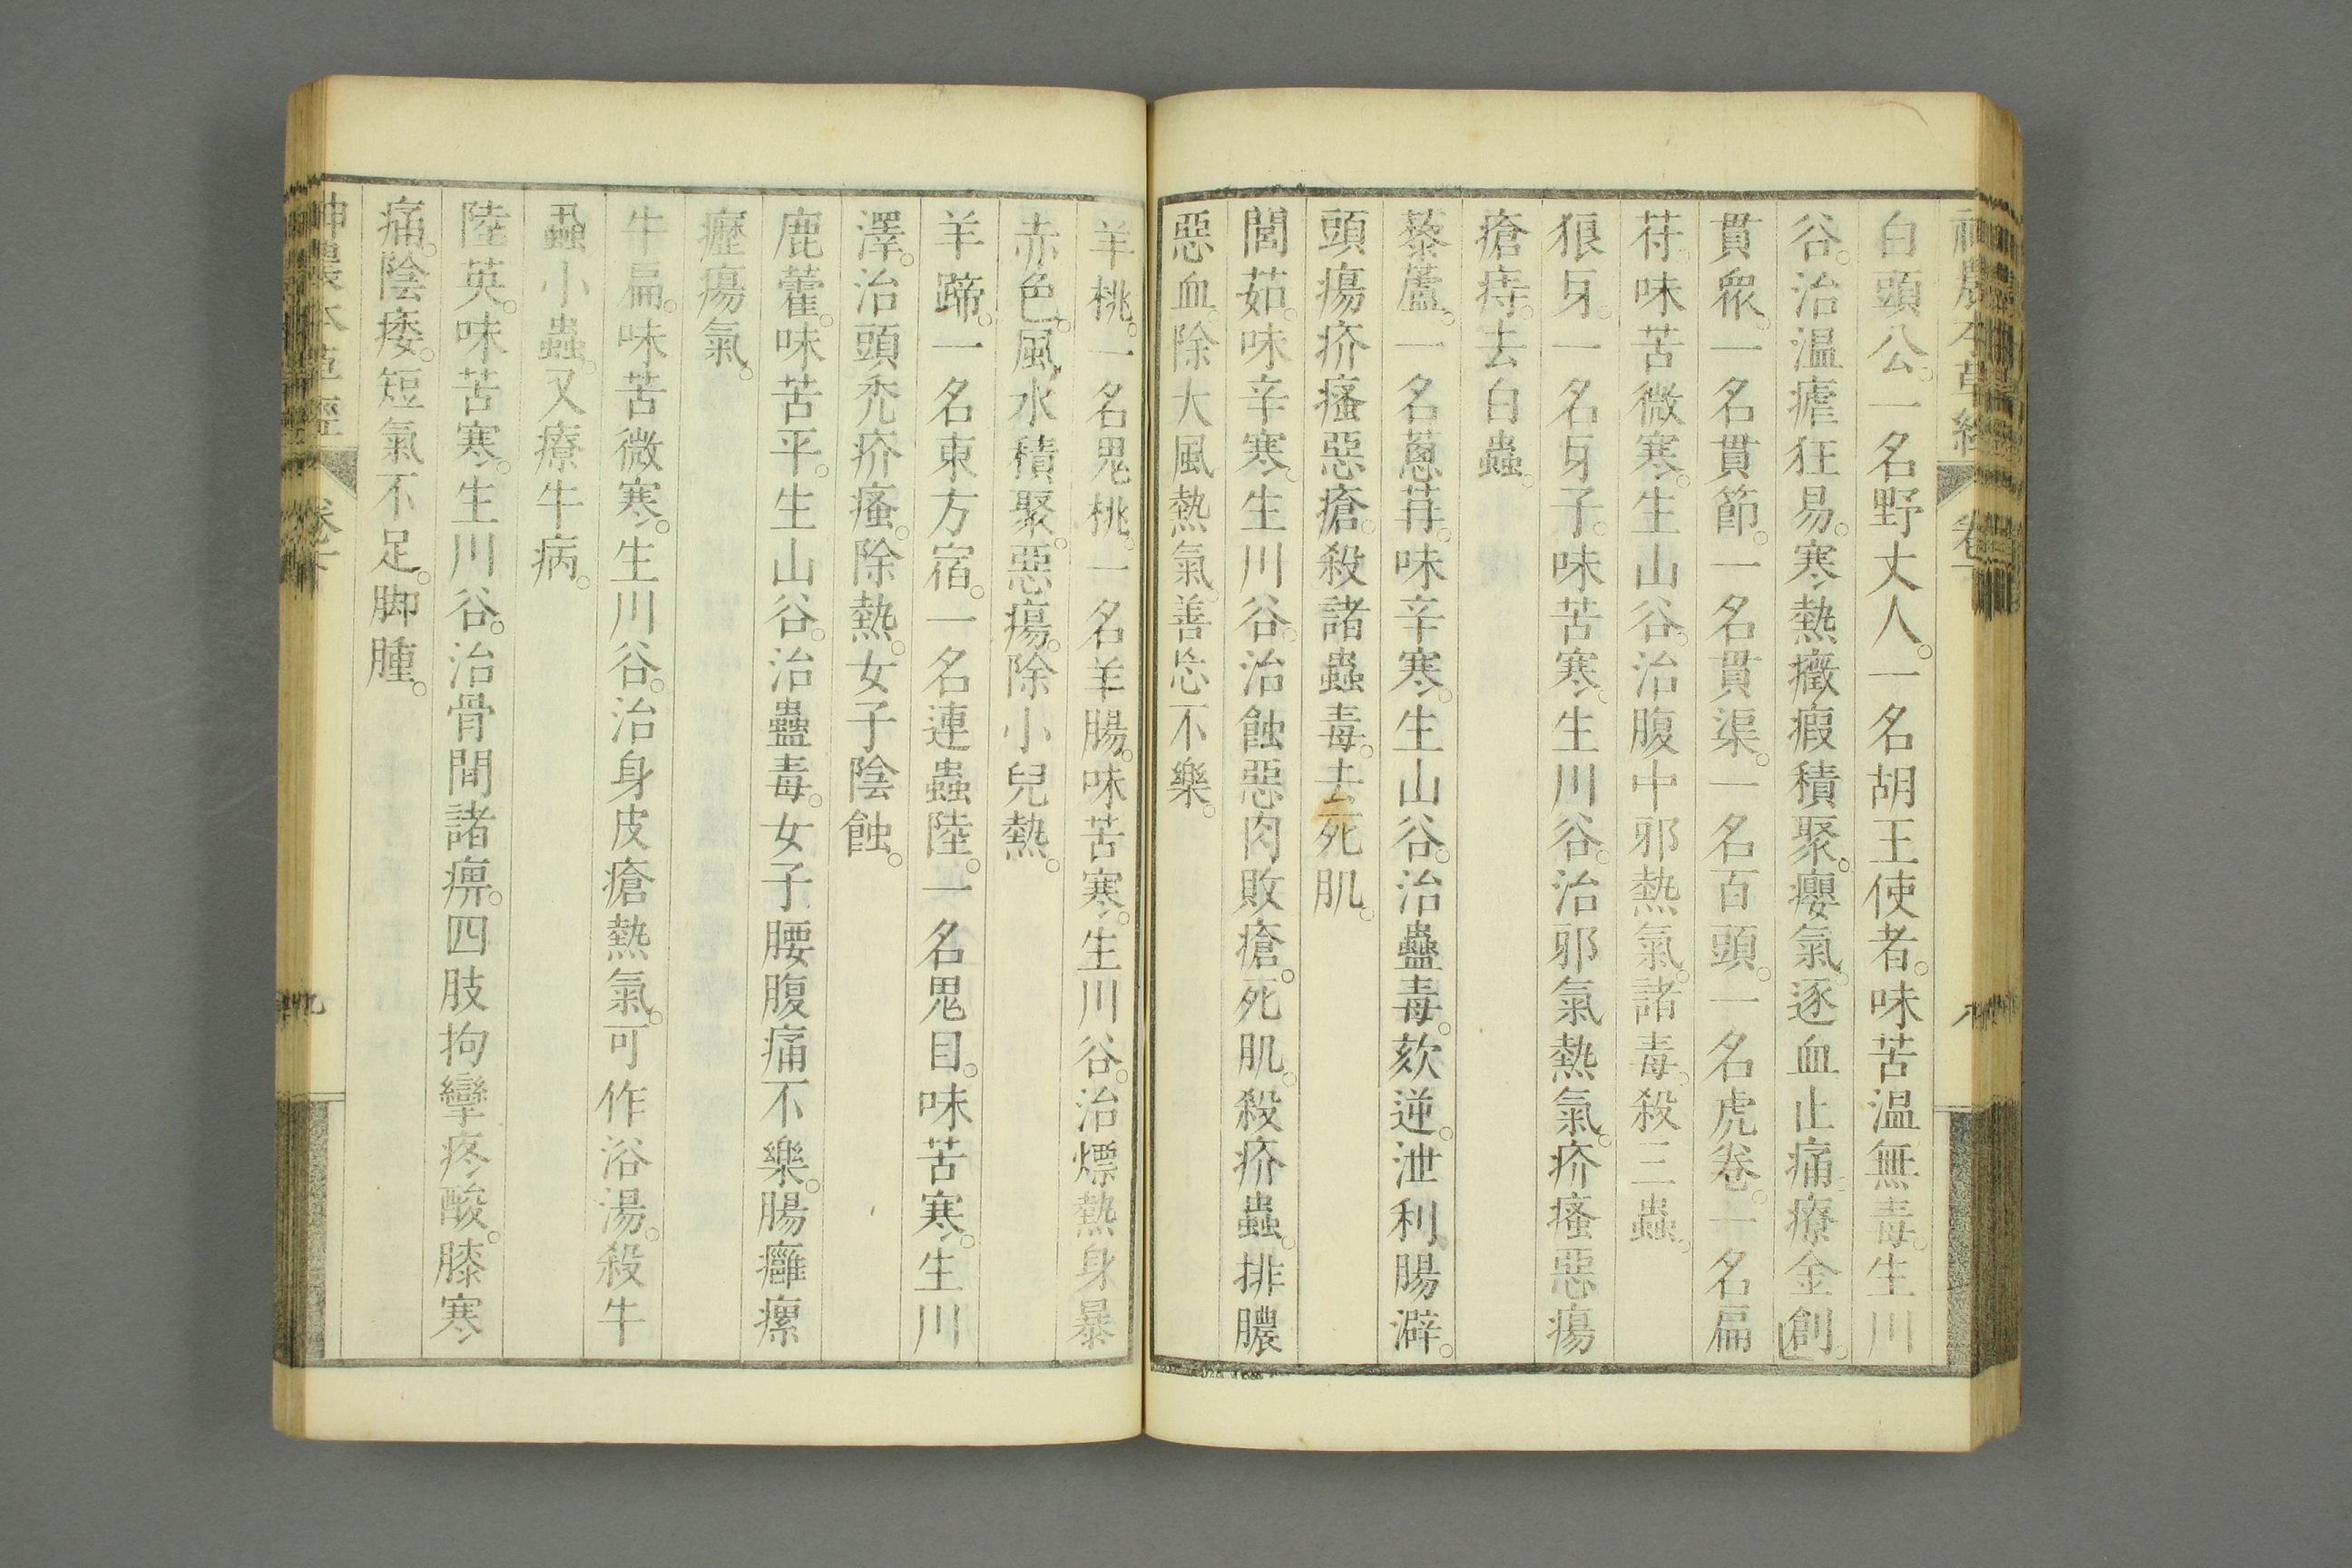 白頭公。一名野丈人。一名胡王使者。味苦温無毒。生川
谷。治温瘧狂易。寒熱癥瘕積聚。癭氣。逐血止痛療金創。
貫衆。一名貫節。一名貫渠。一名百頭。一名虎卷。一名扁
苻。味苦微寒。生山谷。治腹中邪熱氣。諸毒。殺三蟲。
狼牙。一名牙子。味苦寒。生川谷。治邪氣熱氣。疥瘙惡瘍
瘡痔。去白蟲。
藜蘆。一名蔥苒。味辛寒。生山谷。治蠱毒。欬逆。泄利腸澼。
頭瘍疥瘙惡瘡。殺諸蟲毒。去死肌。
閭茹。味辛寒。生川谷。治蝕惡肉敗瘡。死肌。殺疥蟲。排膿
惡血。除大風熱氣。善忘不樂。
羊桃。一名鬼桃。一名羊腸。味苦寒。生川谷。治熛熱身暴
赤色。風水積聚。惡瘍。除小兒熱。
羊蹄。一名東方宿。一名連蟲陸。一名鬼目。味苦寒。生川
澤。治頭禿疥瘙。除熱。女子陰蝕。
鹿藿。味苦平。生山谷。治蠱毒。女子腰腹痛不樂。腸癰瘰
癧瘍氣。
牛扁。味苦微寒。生川谷。治身皮瘡熱氣。可作浴湯。殺牛
蝨小蟲。又療牛病。
陸英。味苦寒。生川谷。治骨間諸痹。四肢拘攣疼酸。膝寒
痛。陰痿。短氣不足。脚腫。
神農本草經 卷下 九